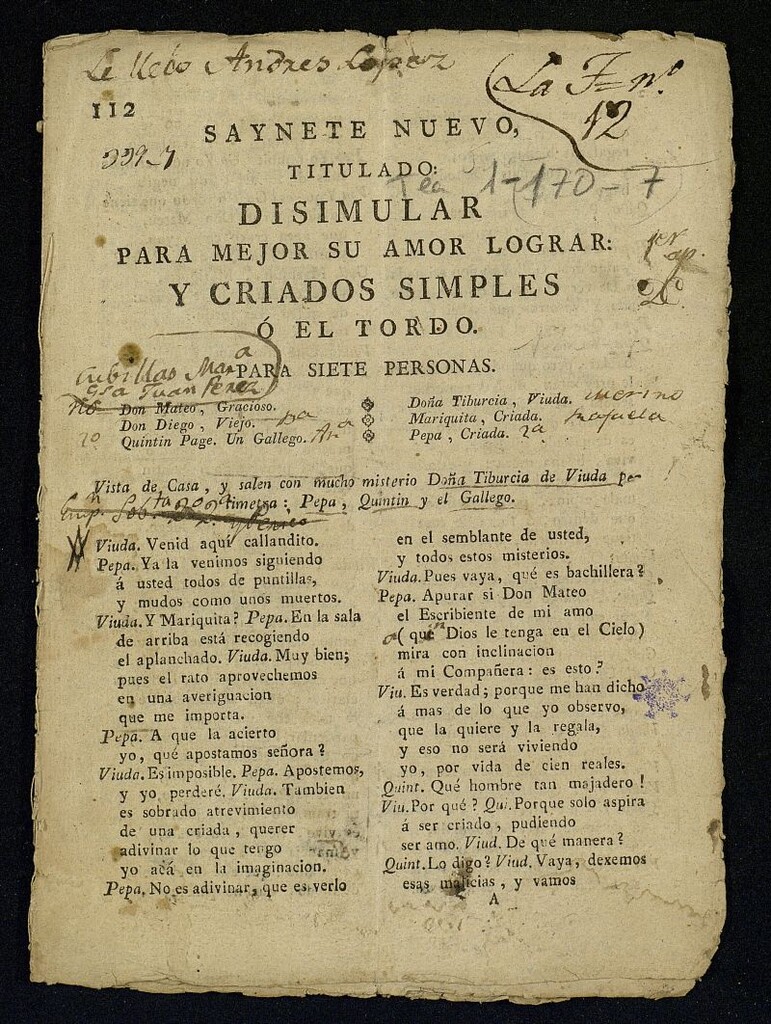 Andres Lopez
La F= nº
12
112
SAYNETE NUEVO,
339-7
TITULADO:
Tea 1-170-7
DISIMULAR
PARA MEJOR SU AMOR LOGRAR:
Y CRIADOS SIMPLES
Ó EL TORDO.
PARA SIETE PERSONAS.
Cubillas Marª
Juan Perez
Don Mateo, Gracioso.
Don Diego, Viejo.
Quintin Page. Un Gallego.
Doña Tiburcia, Viuda. merino
Mariquita, Criada. Rafaela
Pepa, Criada. 2ª
Vista de Casa, y salen con mucho misterio Doña Tiburcia de Viuda pe-
timetra: Pepa, Quintin y el Gallego.
Viuda. Venid aquí callandito.
Pepa. Ya la venimos siguiendo
á usted todos de puntillas,
y mudos como unos muertos.
Viuda. Y Mariquita? Pepa. En la sala
de arriba está recogiendo
el aplanchado. Viuda. Muy bien;
pues el rato aprovechemos
en una averiguacion
que me importa.
Pepa. A que la acierto
yo, qué apostamos señora?
Viuda. Es imposible. Pepa. Apostemos,
y yo perderé. Viuda. Tambien
es sobrado atrevimiento
de una criada, querer
adivinar lo que tengo
yo acá en la imaginacion.
Pepa. No es adivinar, que es verlo
en el semblante de usted,
y todos estos misterios.
Viuda. Pues vaya, qué es bachillera?
Pepa. Apurar si Don Mateo
el Escribiente de mi amo
(que Dios le tenga en el Cielo)
mira con inclinacion
á mi Compañera: es esto?
Viu. Es verdad; porque me han dicho
á mas de lo que yo observo,
que la quiere y la regala,
y eso no será viviendo
yo, por vida de cien reales.
Quint. Qué hombre tan majadero!
Viu. Por qué? Qui. Porque solo aspira
á ser criado, pudiendo
ser amo. Viud. De qué manera?
Quint. Lo digo? Viud. Vaya, dexemos
esas malicias, y vamos
A